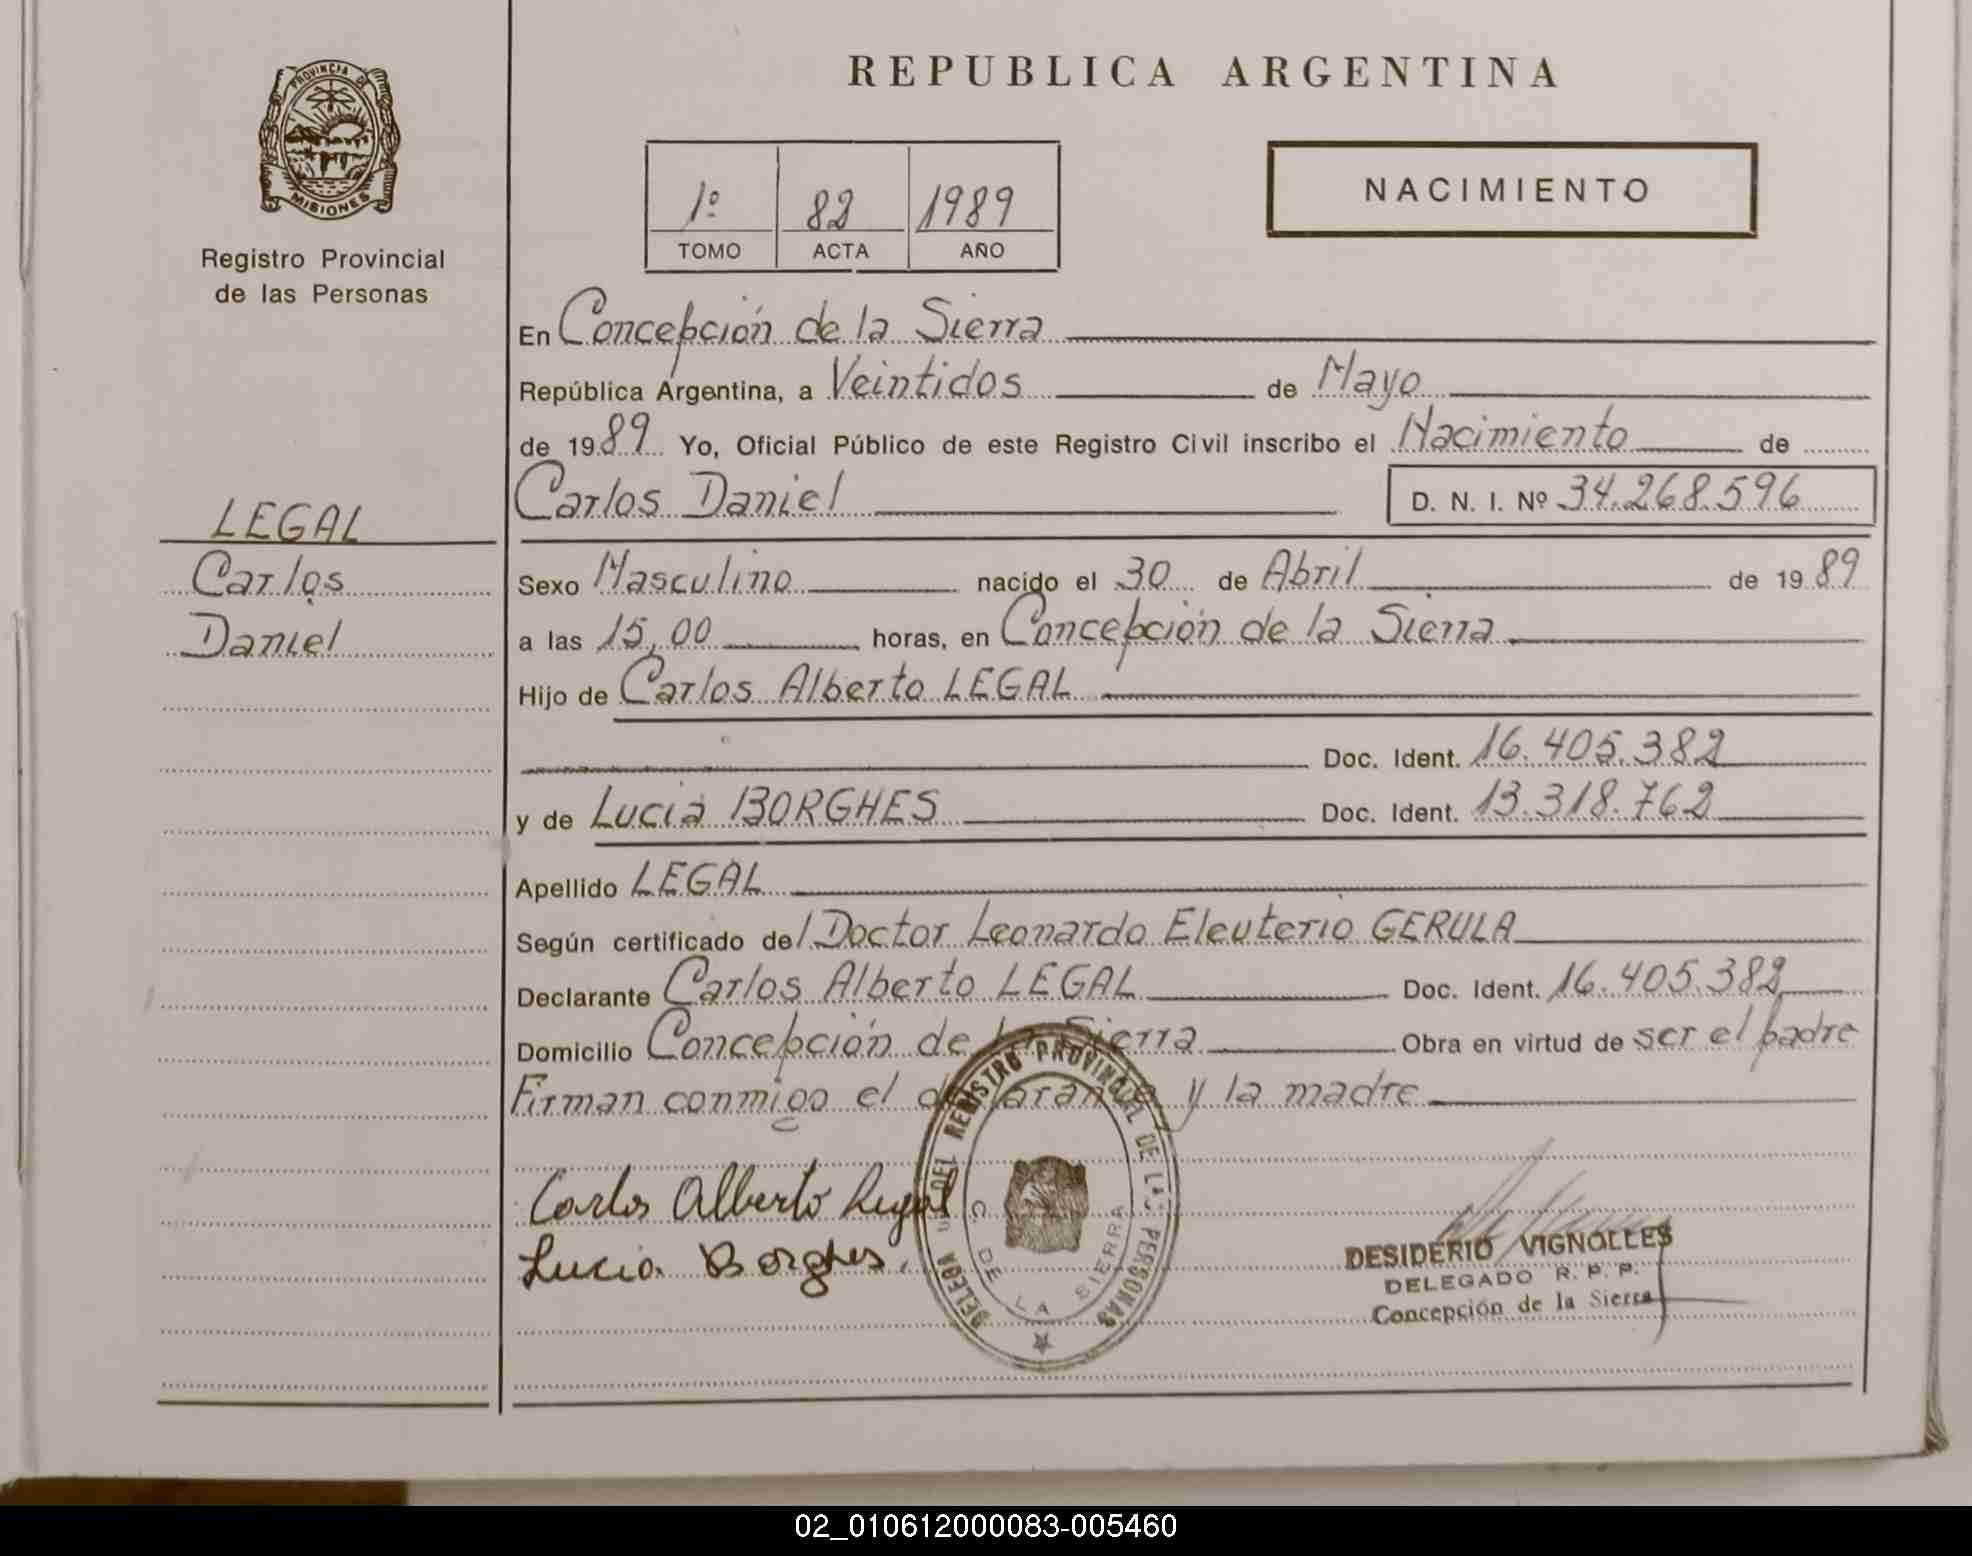 PROVINCIA DE
MISIONES
Registro Provincial
de las Personas
LEGAL
Carlos
Daniel
REPUBLICA ARGENTINA
1º 82 1989
TOMO ACTA AÑO
NACIMIENTO
En Concepción de la Sierra
República Argentina, a Veintidos de Mayo
de 1989 Yo, Oficial Público de este Registro Civil inscribo el Nacimiento de
Carlos Daniel D. N. I. Nº 34.268.596
Sexo Masculino nacido el 30 de Abril de 1989
a las 15,00 horas, en Concepción de la Sierra
Hijo de Carlos Alberto LEGAL
Doc. Ident. 16.405.382
y de Lucia BORGHES Doc. Ident. 13.318.762
Apellido LEGAL
Según certificado del Doctor Leonardo Eleuterio GERULA
Declarante Carlos Alberto LEGAL Doc. Ident. 16.405.382
Domicilio Concepción de la Sierra Obra en virtud de ser el padre
Firman conmigo el declarante y la madre
Carlos Alberto Legal
Lucia Borghes.
DEL REGISTRO PROVINCIAL DE LAS PERSONAS
C. DE LA SIERRA
DESIDERIO VIGNOLLES
DELEGADO R. P. P.
Concepción de la Sierra
02_010612000083-005460